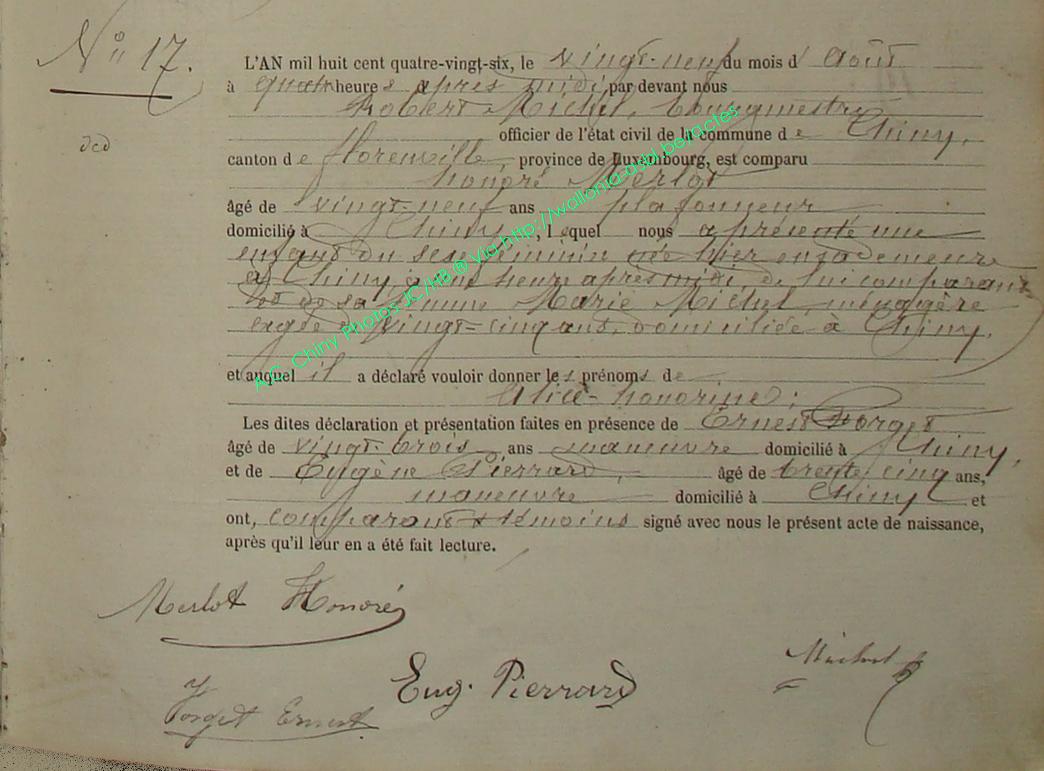 N° 17.
L'AN mil huit cent quatre-vingt-six, le vingt-neuf du mois d'Août
à quatre heures après midi, par devant nous
Robert Michel, bourgmestre
officier de l'état civil de la commune de Chiny,
canton de Florenville, province de Luxembourg, est comparu
honoré Merlot
âgé de vingt-neuf ans plafonneur
domicilié à Chiny, lequel nous a présenté une
enfant du sexe féminin née hier en sa demeure
à Chiny, à une heure après midi, de lui comparant
et de sa femme Marie Michel ménagère
agée de vingt-cinq ans, domiciliée à Chiny.
et auquel il a déclaré vouloir donner les prénoms de
Alice-honorine;
Les dites déclaration et présentation faites en présence de Ernest Forget
âgé de vingt-trois ans manœuvre domicilié à Chiny,
et de Eugène Pierrard, âgé de trente cinq ans,
manœuvre domicilié à Chiny et
ont, comparant & témoins signé avec nous le présent acte de naissance,
après qu'il leur en a été fait lecture.
dcd
Merlot Honoré
Eug. Pierrard
Michel
Forget Ernest
A.C. Chiny Photos JC/HB ® via http://wallonia-asbl.be/actes